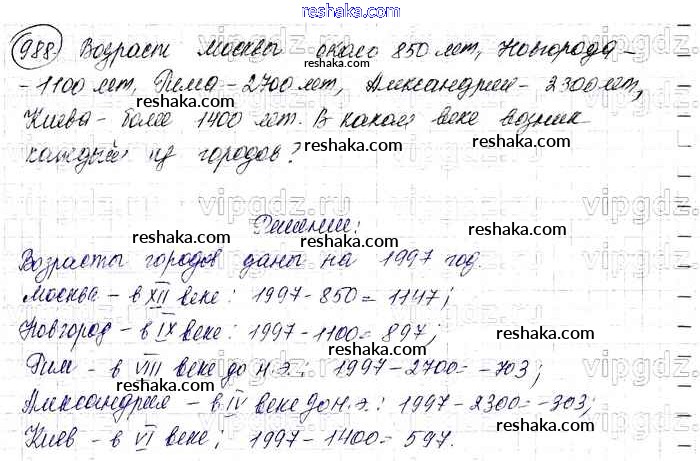 reshaka.com
988. Возраст Москвы около 850 лет, Новгорода -
- 1100 лет, Рима - 2700 лет, Александрии - 2300 лет,
reshaka.com reshaka.com
Киева - более 1400 лет. В каком веке возник
reshaka.com
каждый из городов?
reshaka.com
vipgdz.ru vipgdz.ru vipgdz.ru
Решение:
reshaka.com reshaka.com
Возрасты городов даны на 1997 год.
Москва - в XII веке: 1997 - 850 = 1147;
reshaka.com reshaka.com
Новгород - в IX веке: 1997 - 1100 = 897;
Рим - в VIII веке до н.э.: 1997 - 2700 = -703;
reshaka.com reshaka.com
Александрия - в IV веке до н.э.: 1997 - 2300 = -303;
Киев - в VI веке; 1997 - 1400 = 597.
reshaka.com reshaka.com